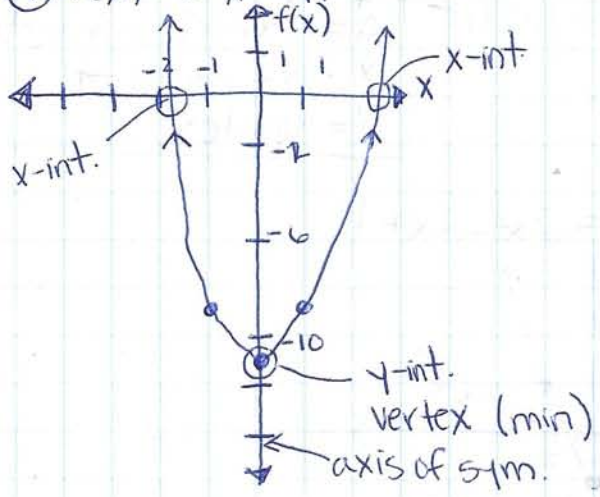 f(x)
-2 -1 1 1
x-int.
x
x-int.
-2
-6
-10
y-int.
vertex (min)
axis of sym.